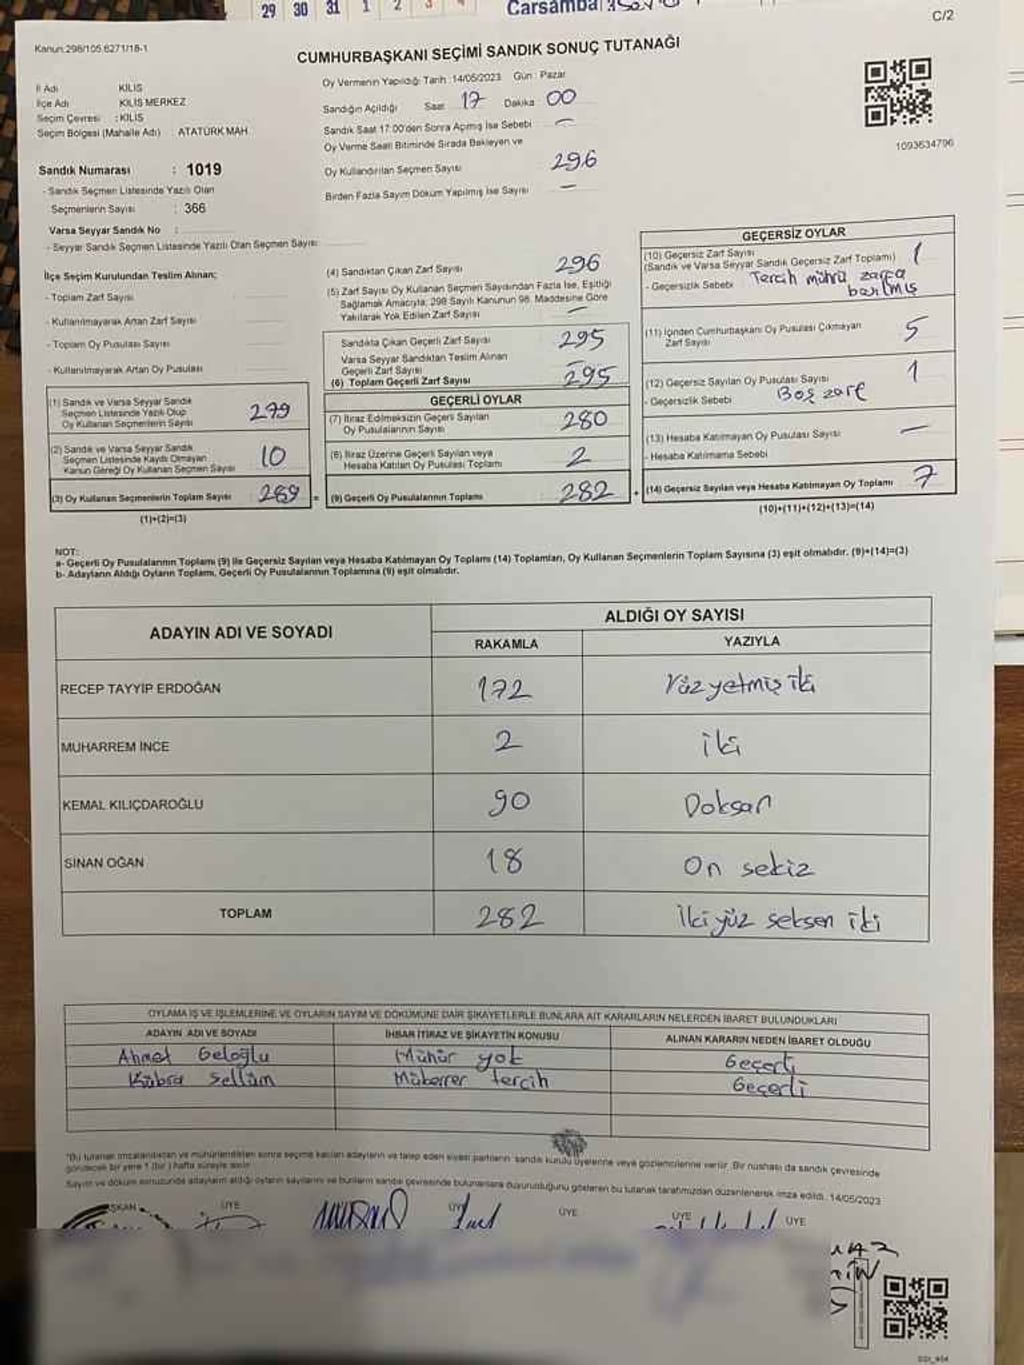 29 30 31 1 2 3 4
Çarşamba
C/2
Kanun:298/105,6271/18-1
CUMHURBAŞKANI SEÇİMİ SANDIK SONUÇ TUTANAĞI
İl Adı KİLİS
İlçe Adı KİLİS MERKEZ
Seçim Çevresi : KİLİS
Seçim Bölgesi (Mahalle Adı) : ATATÜRK MAH.
Oy Vermenin Yapıldığı Tarih :14/05/2023 Gün : Pazar
Sandığın Açıldığı Saat 17 Dakika 00
Sandık Saat 17:00'den Sonra Açılmış İse Sebebi —
Oy Verme Saati Bitiminde Sırada Bekleyen ve
Oy Kullandırılan Seçmen Sayısı 296
Birden Fazla Sayım Döküm Yapılmış İse Sayısı —
1093634796
Sandık Numarası : 1019
- Sandık Seçmen Listesinde Yazılı Olan
Seçmenlerin Sayısı : 366
Varsa Seyyar Sandık No :
- Seyyar Sandık Seçmen Listesinde Yazılı Olan Seçmen Sayısı:
İlçe Seçim Kurulundan Teslim Alınan;
- Toplam Zarf Sayısı
- Kullanılmayarak Artan Zarf Sayısı
- Toplam Oy Pusulası Sayısı
- Kullanılmayarak Artan Oy Pusulası
(1) Sandık ve Varsa Seyyar Sandık
Seçmen Listesinde Yazılı Olup
Oy Kullanan Seçmenlerin Sayısı 279
(2) Sandık ve Varsa Seyyar Sandık
Seçmen Listesinde Kayıtlı Olmayan
Kanun Gereği Oy Kullanan Seçmen Sayısı 10
(3) Oy Kullanan Seçmenlerin Toplam Sayısı 289 =
(1)+(2)=(3)
(4) Sandıktan Çıkan Zarf Sayısı 296
(5) Zarf Sayısı Oy Kullanan Seçmen Sayısından Fazla İse, Eşitliği
Sağlamak Amacıyla, 298 Sayılı Kanunun 98. Maddesine Göre
Yakılarak Yok Edilen Zarf Sayısı —
Sandıkta Çıkan Geçerli Zarf Sayısı 295
Varsa Seyyar Sandıktan Teslim Alınan
Geçerli Zarf Sayısı
(6) Toplam Geçerli Zarf Sayısı 295
GEÇERLİ OYLAR
(7) İtiraz Edilmeksizin Geçerli Sayılan
Oy Pusulalarının Sayısı 280
(8) İtiraz Üzerine Geçerli Sayılan veya
Hesaba Katılan Oy Pusulası Toplamı 2
(9) Geçerli Oy Pusulalarının Toplamı 282 +
GEÇERSİZ OYLAR
(10) Geçersiz Zarf Sayısı
(Sandık ve Varsa Seyyar Sandık Geçersiz Zarf Toplamı) 1
- Geçersizlik Sebebi Tercih mührü zarfa
barılmış
(11) İçinden Cumhurbaşkanı Oy Pusulası Çıkmayan
Zarf Sayısı 5
(12) Geçersiz Sayılan Oy Pusulası Sayısı 1
- Geçersizlik Sebebi Boş zarf
(13) Hesaba Katılmayan Oy Pusulası Sayısı —
- Hesaba Katılmama Sebebi
(14) Geçersiz Sayılan veya Hesaba Katılmayan Oy Toplamı 7
(10)+(11)+(12)+(13)=(14)
NOT:
a- Geçerli Oy Pusulalarının Toplamı (9) ile Geçersiz Sayılan veya Hesaba Katılmayan Oy Toplamı (14) Toplamları, Oy Kullanan Seçmenlerin Toplam Sayısına (3) eşit olmalıdır. (9)+(14)=(3)
b- Adayların Aldığı Oyların Toplamı, Geçerli Oy Pusulalarının Toplamına (9) eşit olmalıdır.
ADAYIN ADI VE SOYADI
ALDIĞI OY SAYISI
RAKAMLA YAZIYLA
RECEP TAYYİP ERDOĞAN 172 Yüz yetmiş iki
MUHARREM İNCE 2 iki
KEMAL KILIÇDAROĞLU 90 Doksan
SİNAN OĞAN 18 On sekiz
TOPLAM 282 İki yüz seksen iki
OYLAMA İŞ VE İŞLEMLERİNE VE OYLARIN SAYIM VE DÖKÜMÜNE DAİR ŞİKAYETLERLE BUNLARA AİT KARARLARIN NELERDEN İBARET BULUNDUKLARI
ADAYIN ADI VE SOYADI İHBAR İTİRAZ VE ŞİKAYETİN KONUSU ALINAN KARARIN NEDEN İBARET OLDUĞU
Ahmet Geloğlu Mühür yok Geçerli
Kübra Sellüm Müberrer tercih Geçerli
*Bu tutanak imzalandıktan ve mühürlendikten sonra seçime katılan adayların ve talep eden siyasi partilerin sandık kurulu üyelerine veya gözlemcilerine verilir. Bir nüshası da sandık çevresinde
görülecek bir yere 1 (bir) hafta süreyle asılır.
Sayım ve döküm sonucunda adayların aldığı oyların sayılarını ve bunların sandık çevresinde bulunanlara duyurulduğunu gösteren bu tutanak tarafımızdan düzenlenerek imza edildi. 14/05/2023
BAŞKAN ÜYE ÜYE ÜYE ÜYE ÜYE